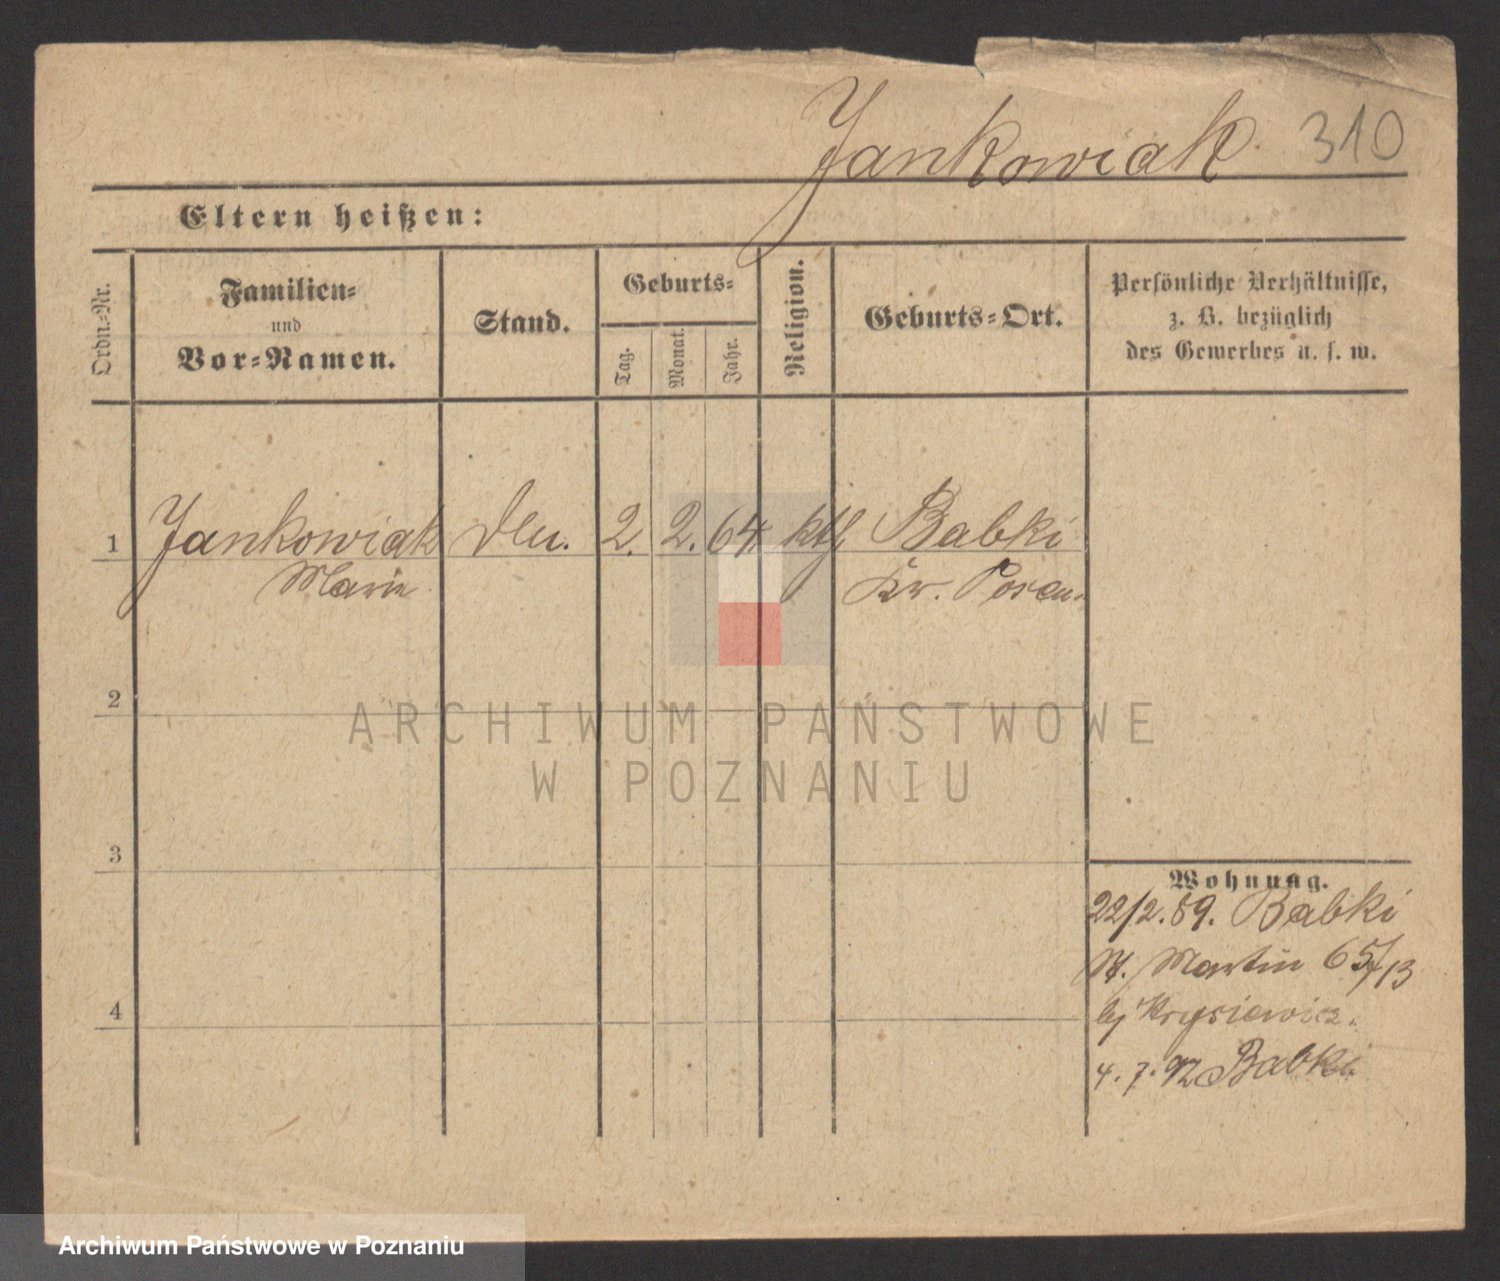 Jankowiak 310
Eltern heißen:
Ordn.-Nr.
Familien-
und
Vor-Namen.
Stand.
Geburts-
Tag.
Monat.
Jahr.
Religion.
Geburts-Ort.
Persönliche Verhältnisse,
z. B. bezüglich
des Gewerbes u. s. w.
1 Jankowiak 2. 2. 64 kth Babki
Marie Kr. Posen.
2
ARCHIWUM PAŃSTWOWE
W POZNANIU
3
Wohnung.
22/2. 89. Babki
St. Martin 65/13
bei Krysiewicz.
4
4. 7. 92 Babki
Archiwum Państwowe w Poznaniu